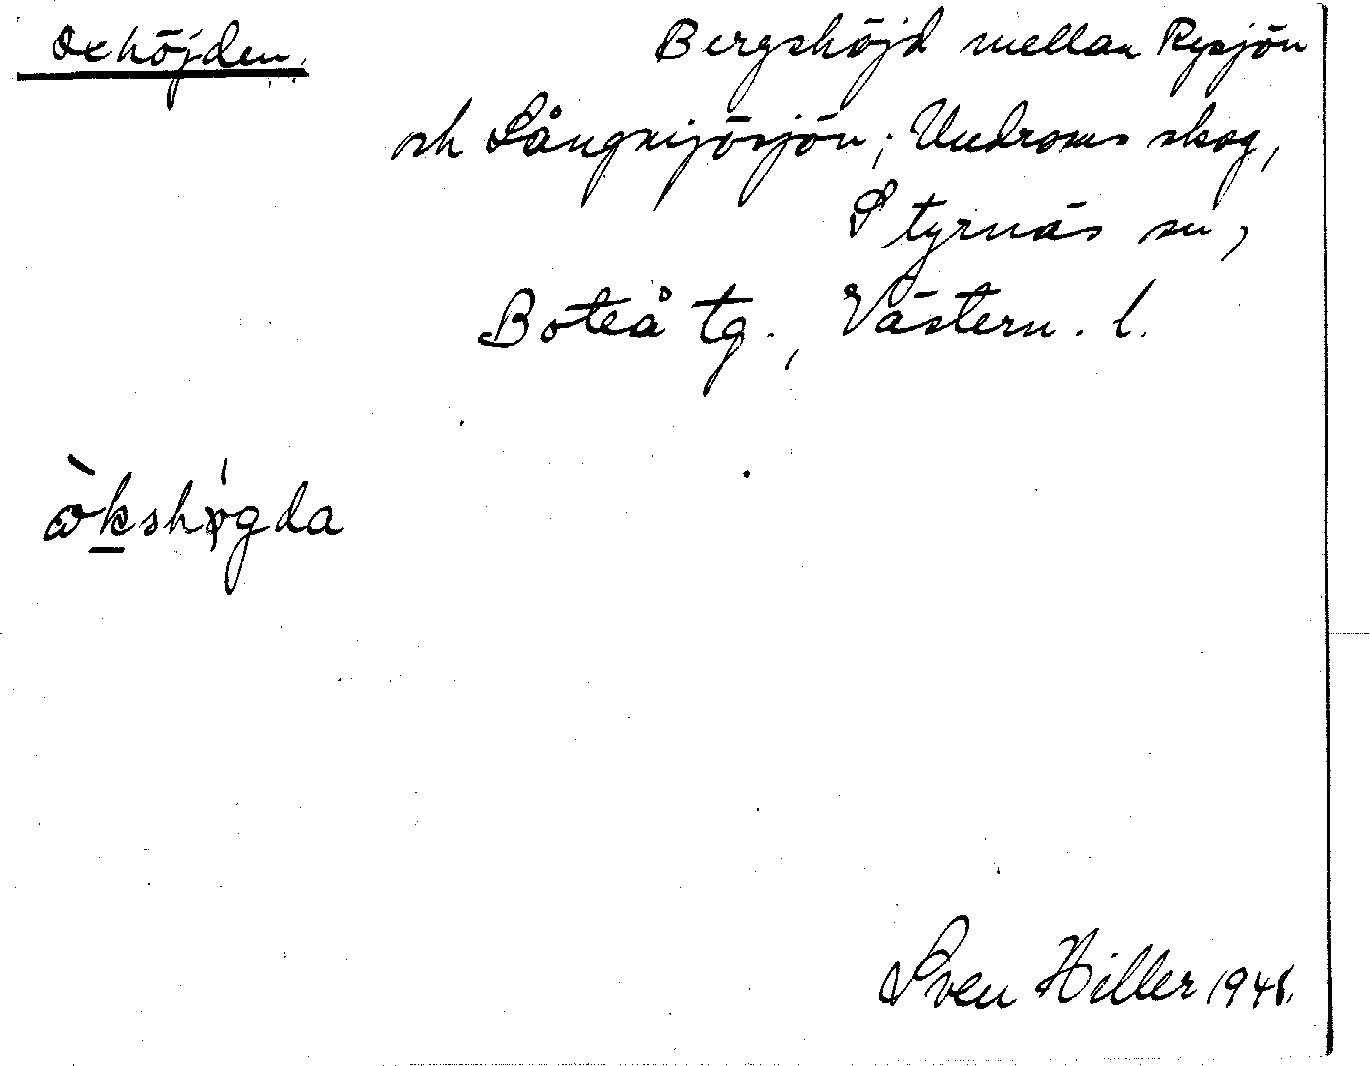 Oxhöjden.
Bergshöjd mellan Rysjön
och Långmjösjön; Undroms skog,
Styrnäs sn,
Boteå tg., Västern. l.
ò̀kshø̍gda
Sven Hiller 1948.